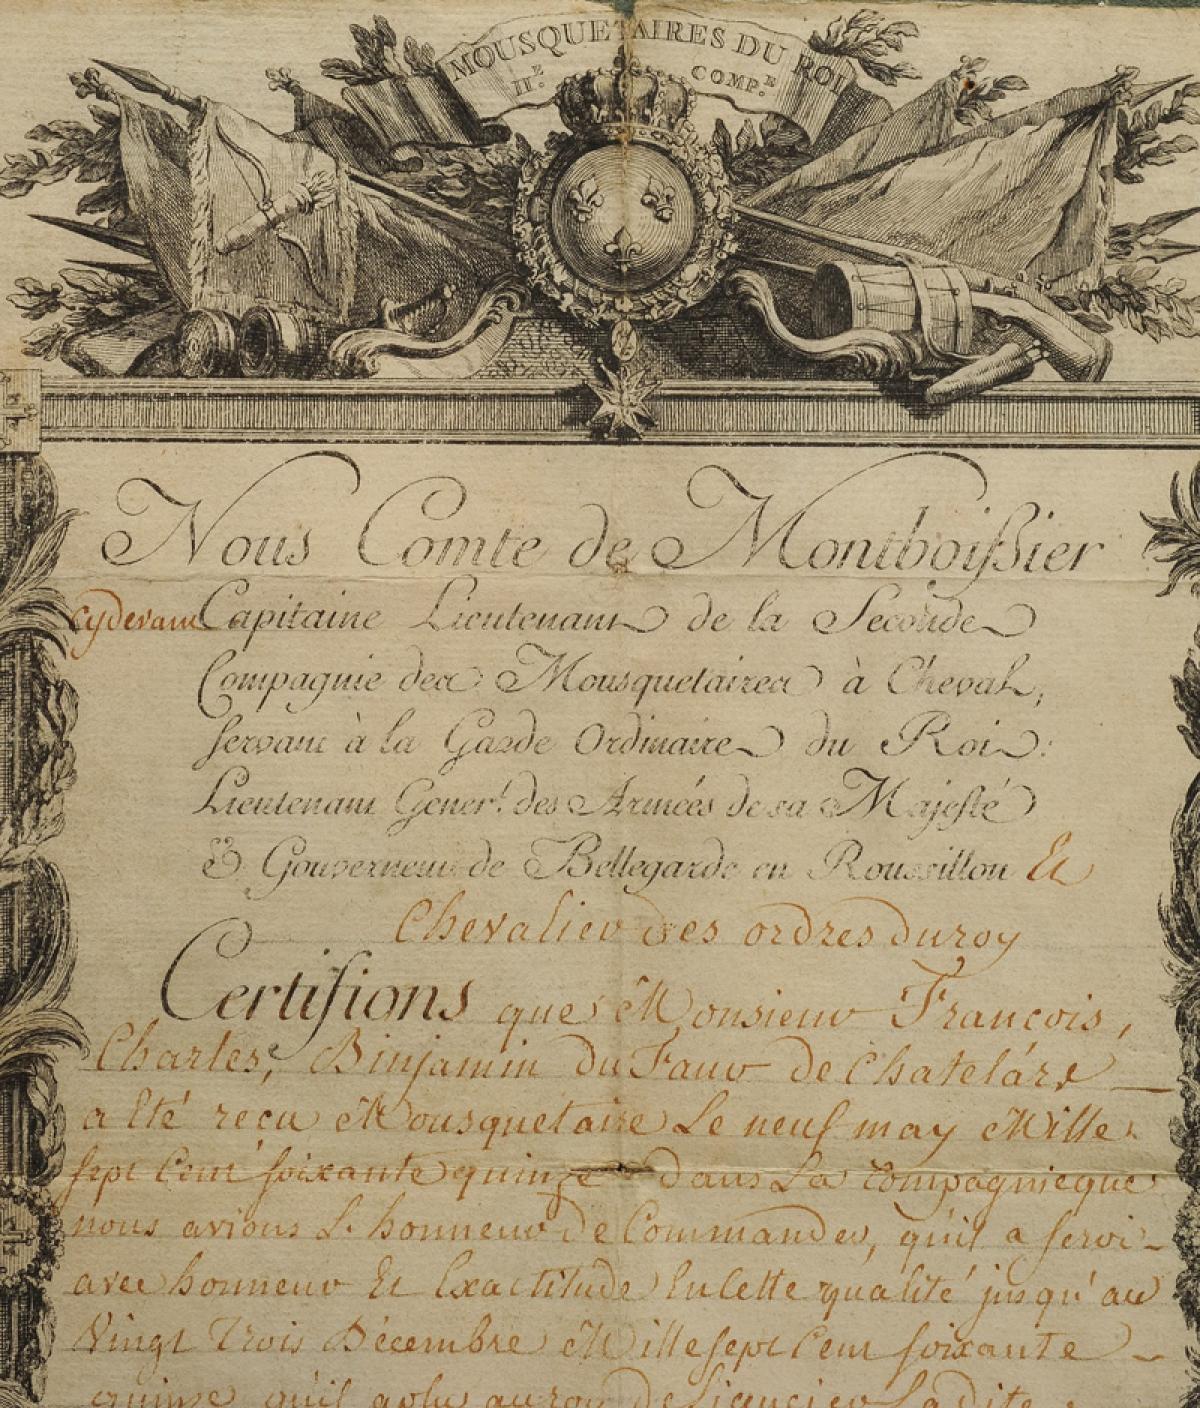 MOUSQUETAIRES DU ROI
II.E COMP.E
Nous Comte de Montboißier
cydevant Capitaine Lieutenant de la Seconde
Compagnie des Mousquetaires à Cheval,
servant à la Garde Ordinaire du Roi:
Lieutenant Gener.l des Armées de sa Majesté
& Gouverneur de Bellegarde en Roussillon Et
Chevalier des ordres du roy
Certifions que Monsieur François,
Charles, Binjamin Du Faur de Chatelár
a Eté recu Mousquetaire Le neuf may Mille
sept Cent soixante quinze dans La Compagnie que
nous avions L'honneur De Commander, qu'il a servi
avec honneur Et Exactitude En Cette qualité jusqu'au
Vingt Trois Décembre Mille sept Cent soixante
quinze qu'il a plu au roy De Licencier La dite